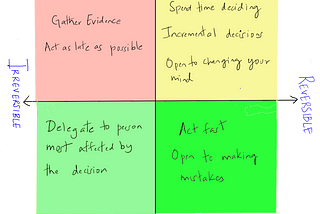 Gather Evidence
Act as late as possible
Spend time deciding
Incremental decisions
Open to changing your
mind
IRREVERSIBLE
REVERSIBLE
Delegate to person
most affected by
the decision
Act fast
Open to making
mistakes